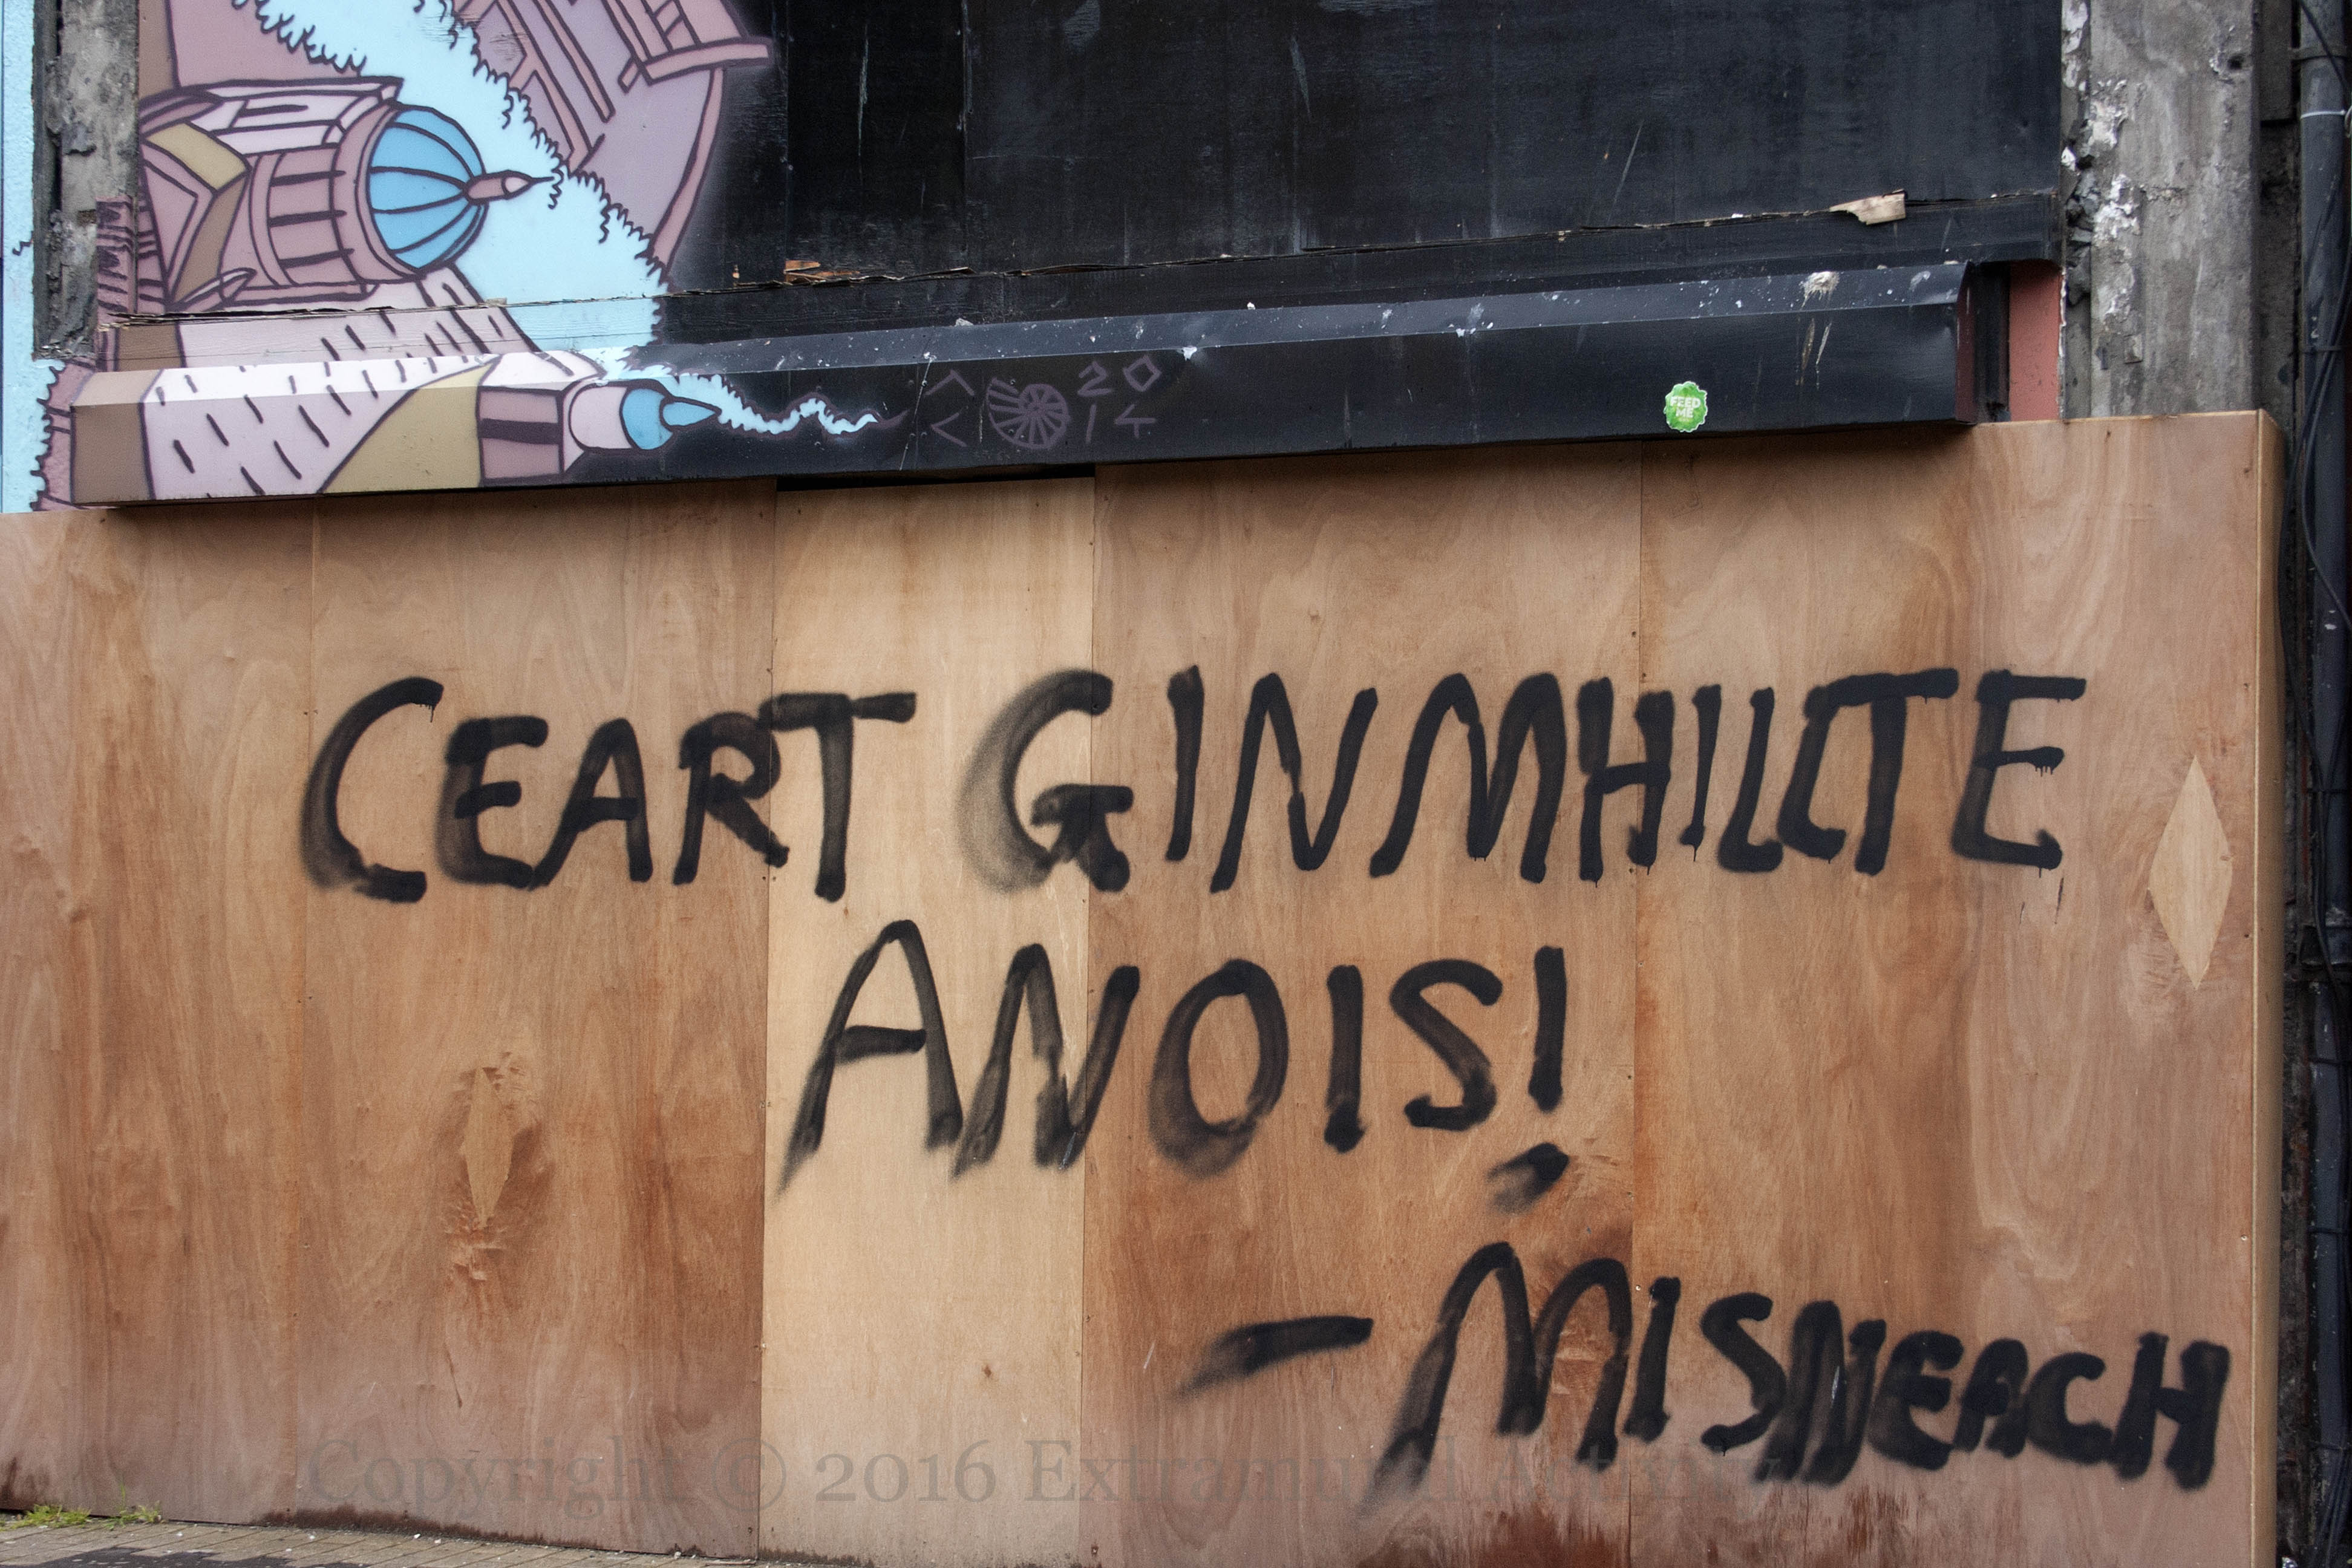 20
14
FEED
ME
CEART GINMHILLTE
ANOIS!
- MISNEACH
Copyright © 2016 Extramural Activity